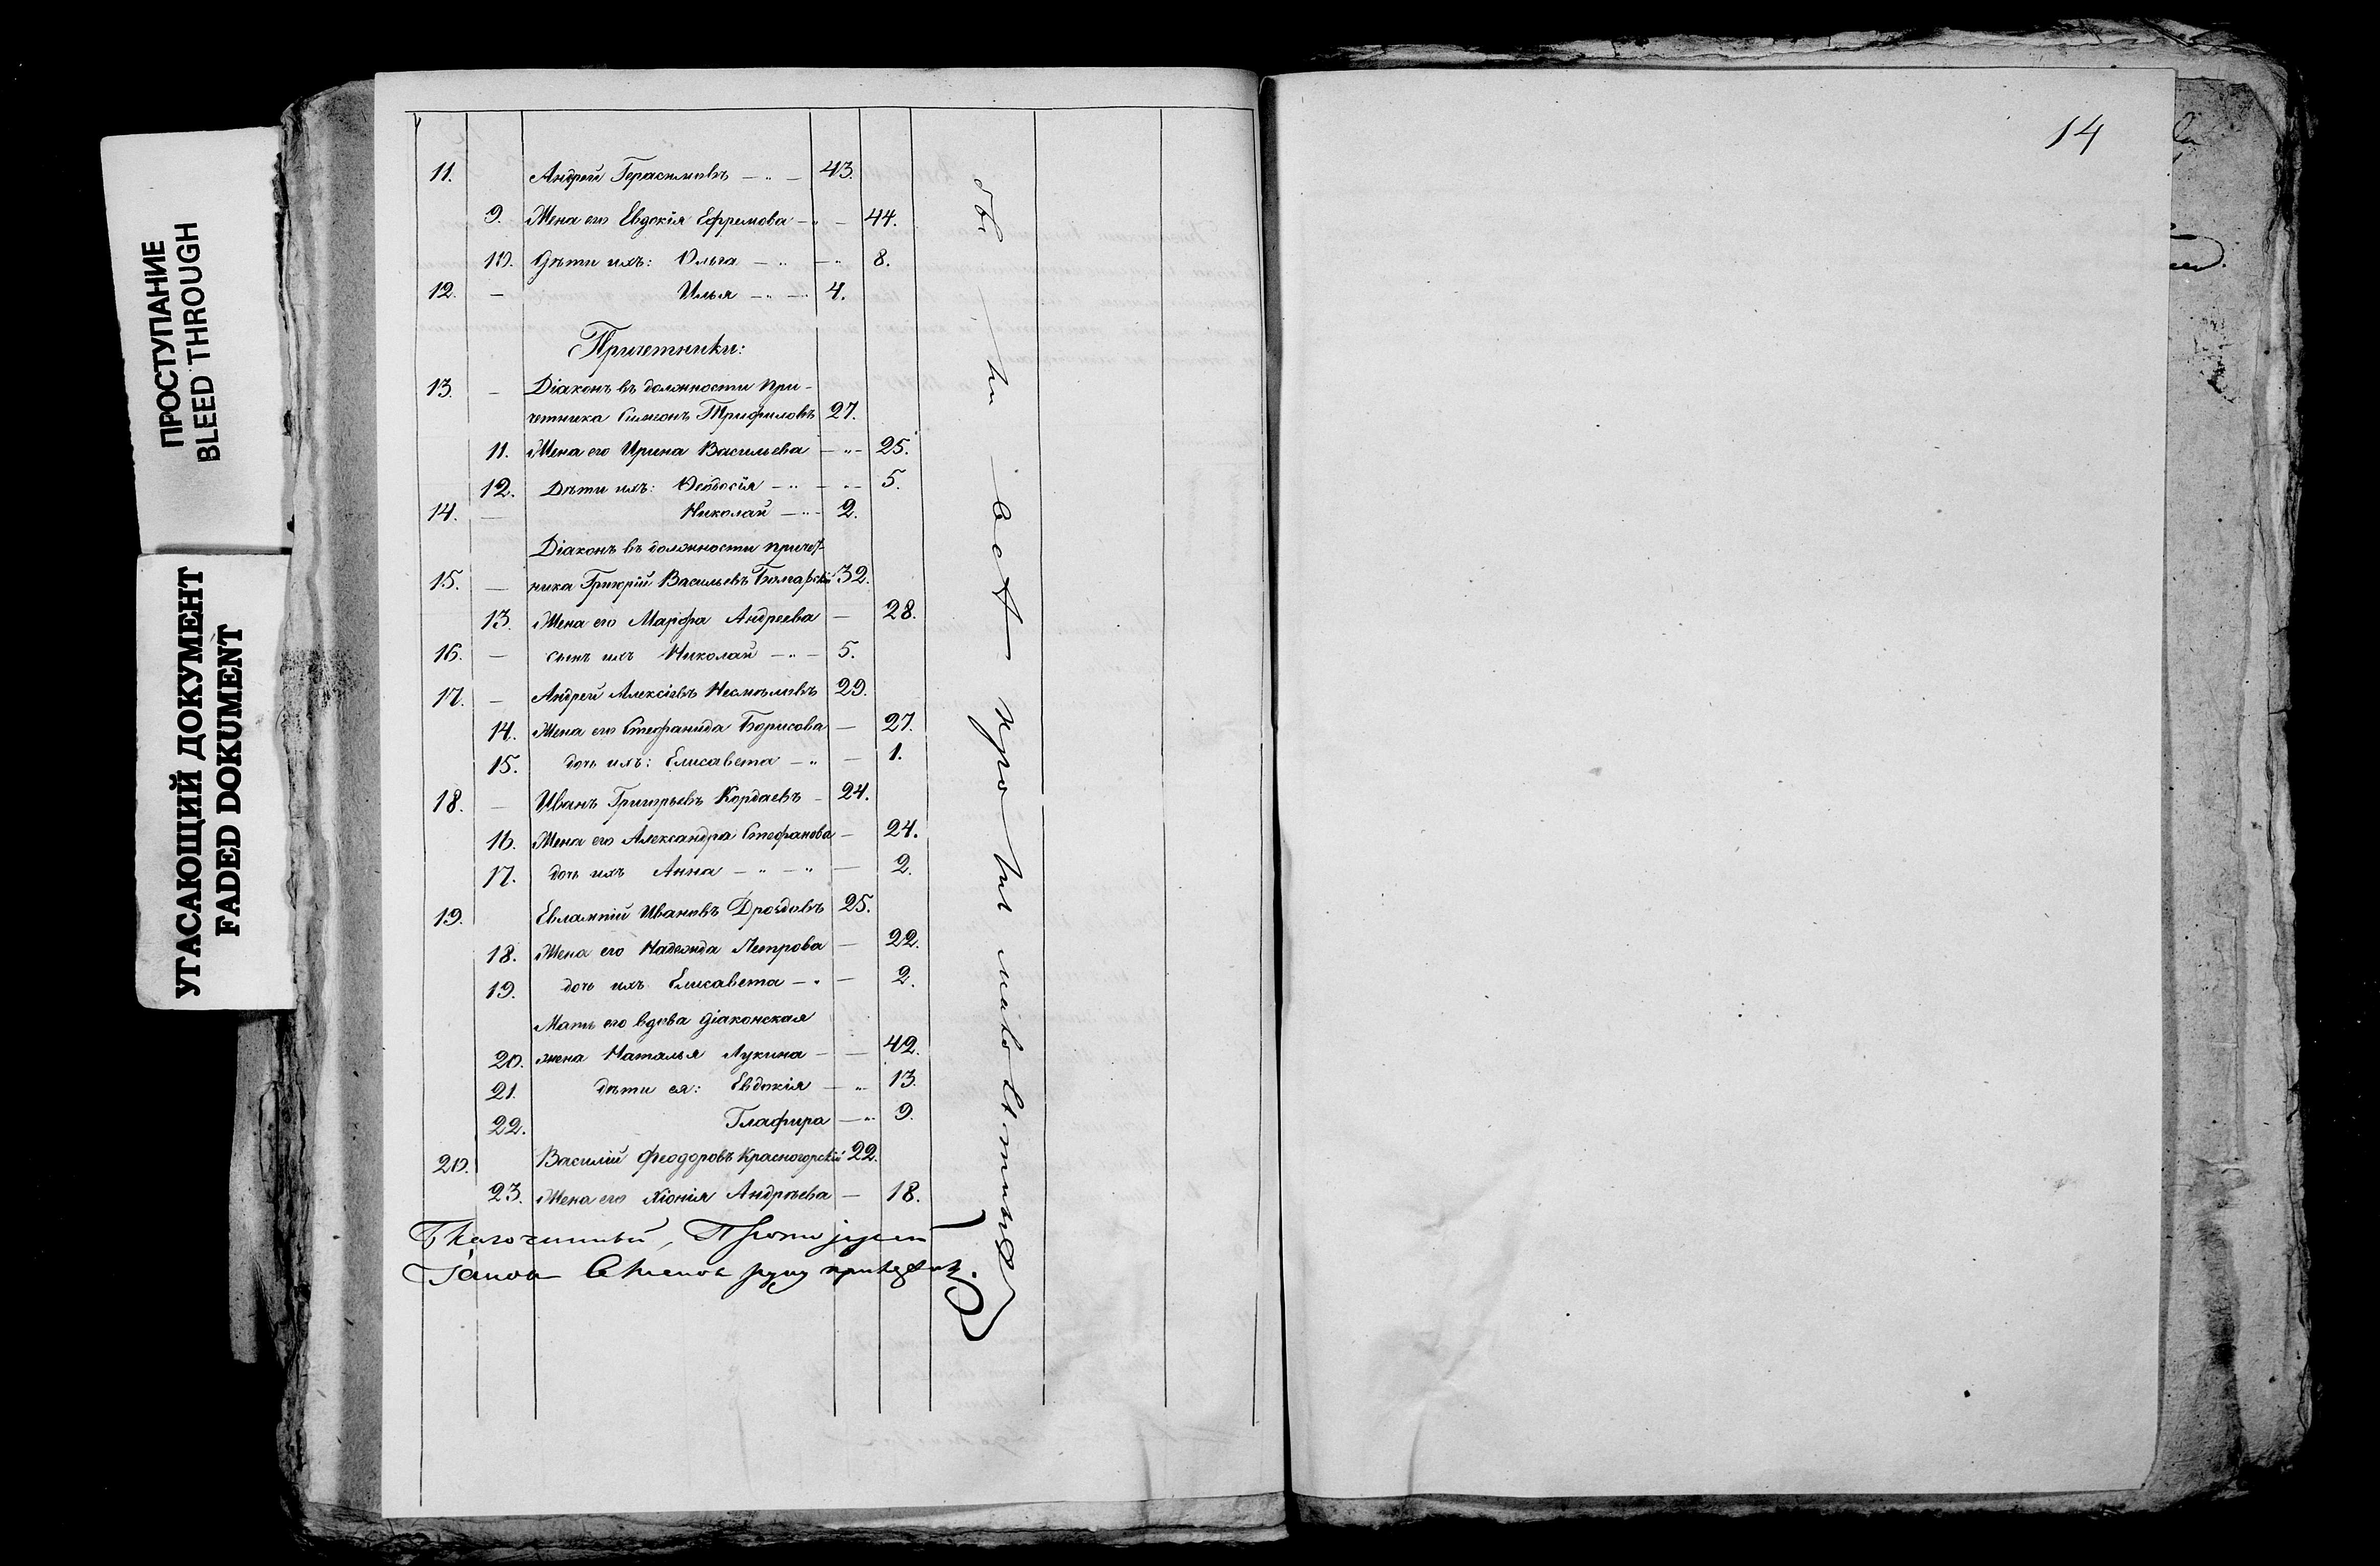 ПРОСТУПАНИЕ
BLEED THROUGH
УГАСАЮЩИЙ ДОКУМЕНТ
FADED DOKUMENT
14
11. Андрей Герасимовъ — „ — 43.
9. Жена его Евдокія Ефремова — „ — 44.
10. Дѣти ихъ: Ольга — „ — „ 8.
12. — Илья — „ — 4.
Причетники:
13. — Діаконъ въ должности при-
четника Симеонъ Трифиловъ 27.
11. Жена его Ирина Васильева — „ — 25.
12. Дѣти ихъ: Ѳеодосія — „ — „ — 5.
14. — Николай — „ — 2.
Діаконъ въ должности причет-
15. — ника Григорій Васильевъ 32.
13. Жена его Марфа Андреева — 28.
16. — сынъ ихъ Николай — „ — 5.
17. — Андрей Алексіевъ Несмѣловъ 29.
14. Жена его Стефанида Борисова — 27.
15. дочь ихъ: Елисавета — „ — 1.
18. — Иванъ Григорьевъ Кордаевъ — 24.
16. Жена его Александра Стефанова — 24.
17. дочь ихъ Анна — „ — „ — 2.
19. Евлампій Ивановъ Дроздовъ 25.
18. Жена его Надежда Петрова — 22.
19. дочь ихъ Елисавета — „ — 2.
Мать его вдова діаконская
20. жена Наталья Лукина — — 42.
21. дѣти ея: Евдокія — „ 13.
22. Глафира — „ 9.
20. Василій Феодоровъ Красногорскій 22.
23. Жена его Хіонія Андреева — 18.
Благочинный, Протоіерей
руку приложилъ.